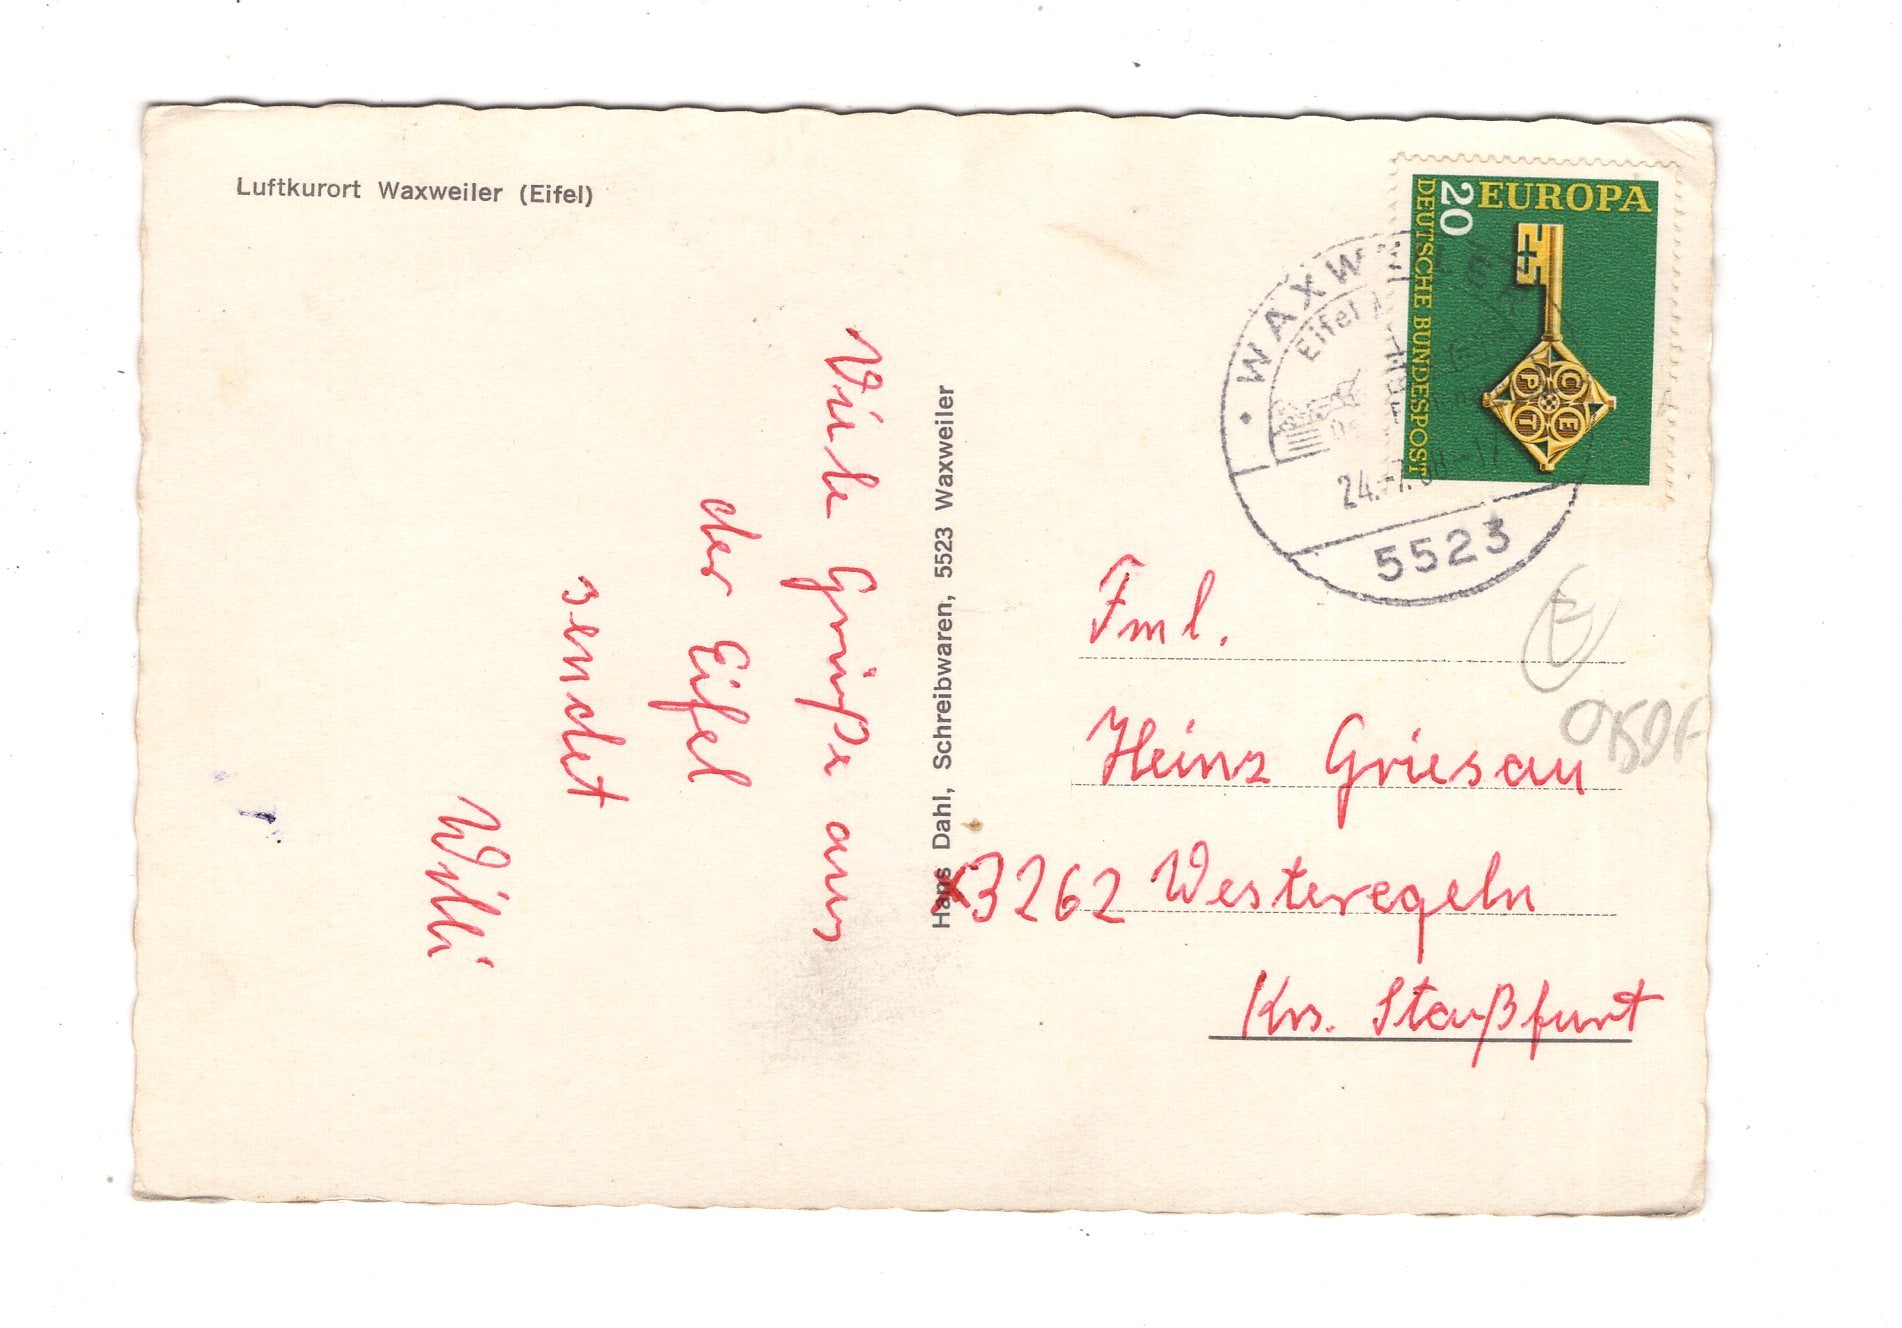 Luftkurort Waxweiler (Eifel)
Viele Grüße aus
der Eifel
sendet
Willi
Hans Dahl, Schreibwaren, 5523 Waxweiler
EUROPA
20
DEUTSCHE BUNDESPOST
C E
P T
WAXWEILER
Eifel
24.-7.68-17
5523
Fml.
Heinz Griesau
X3262 Westeregeln
Krs. Staßfurt